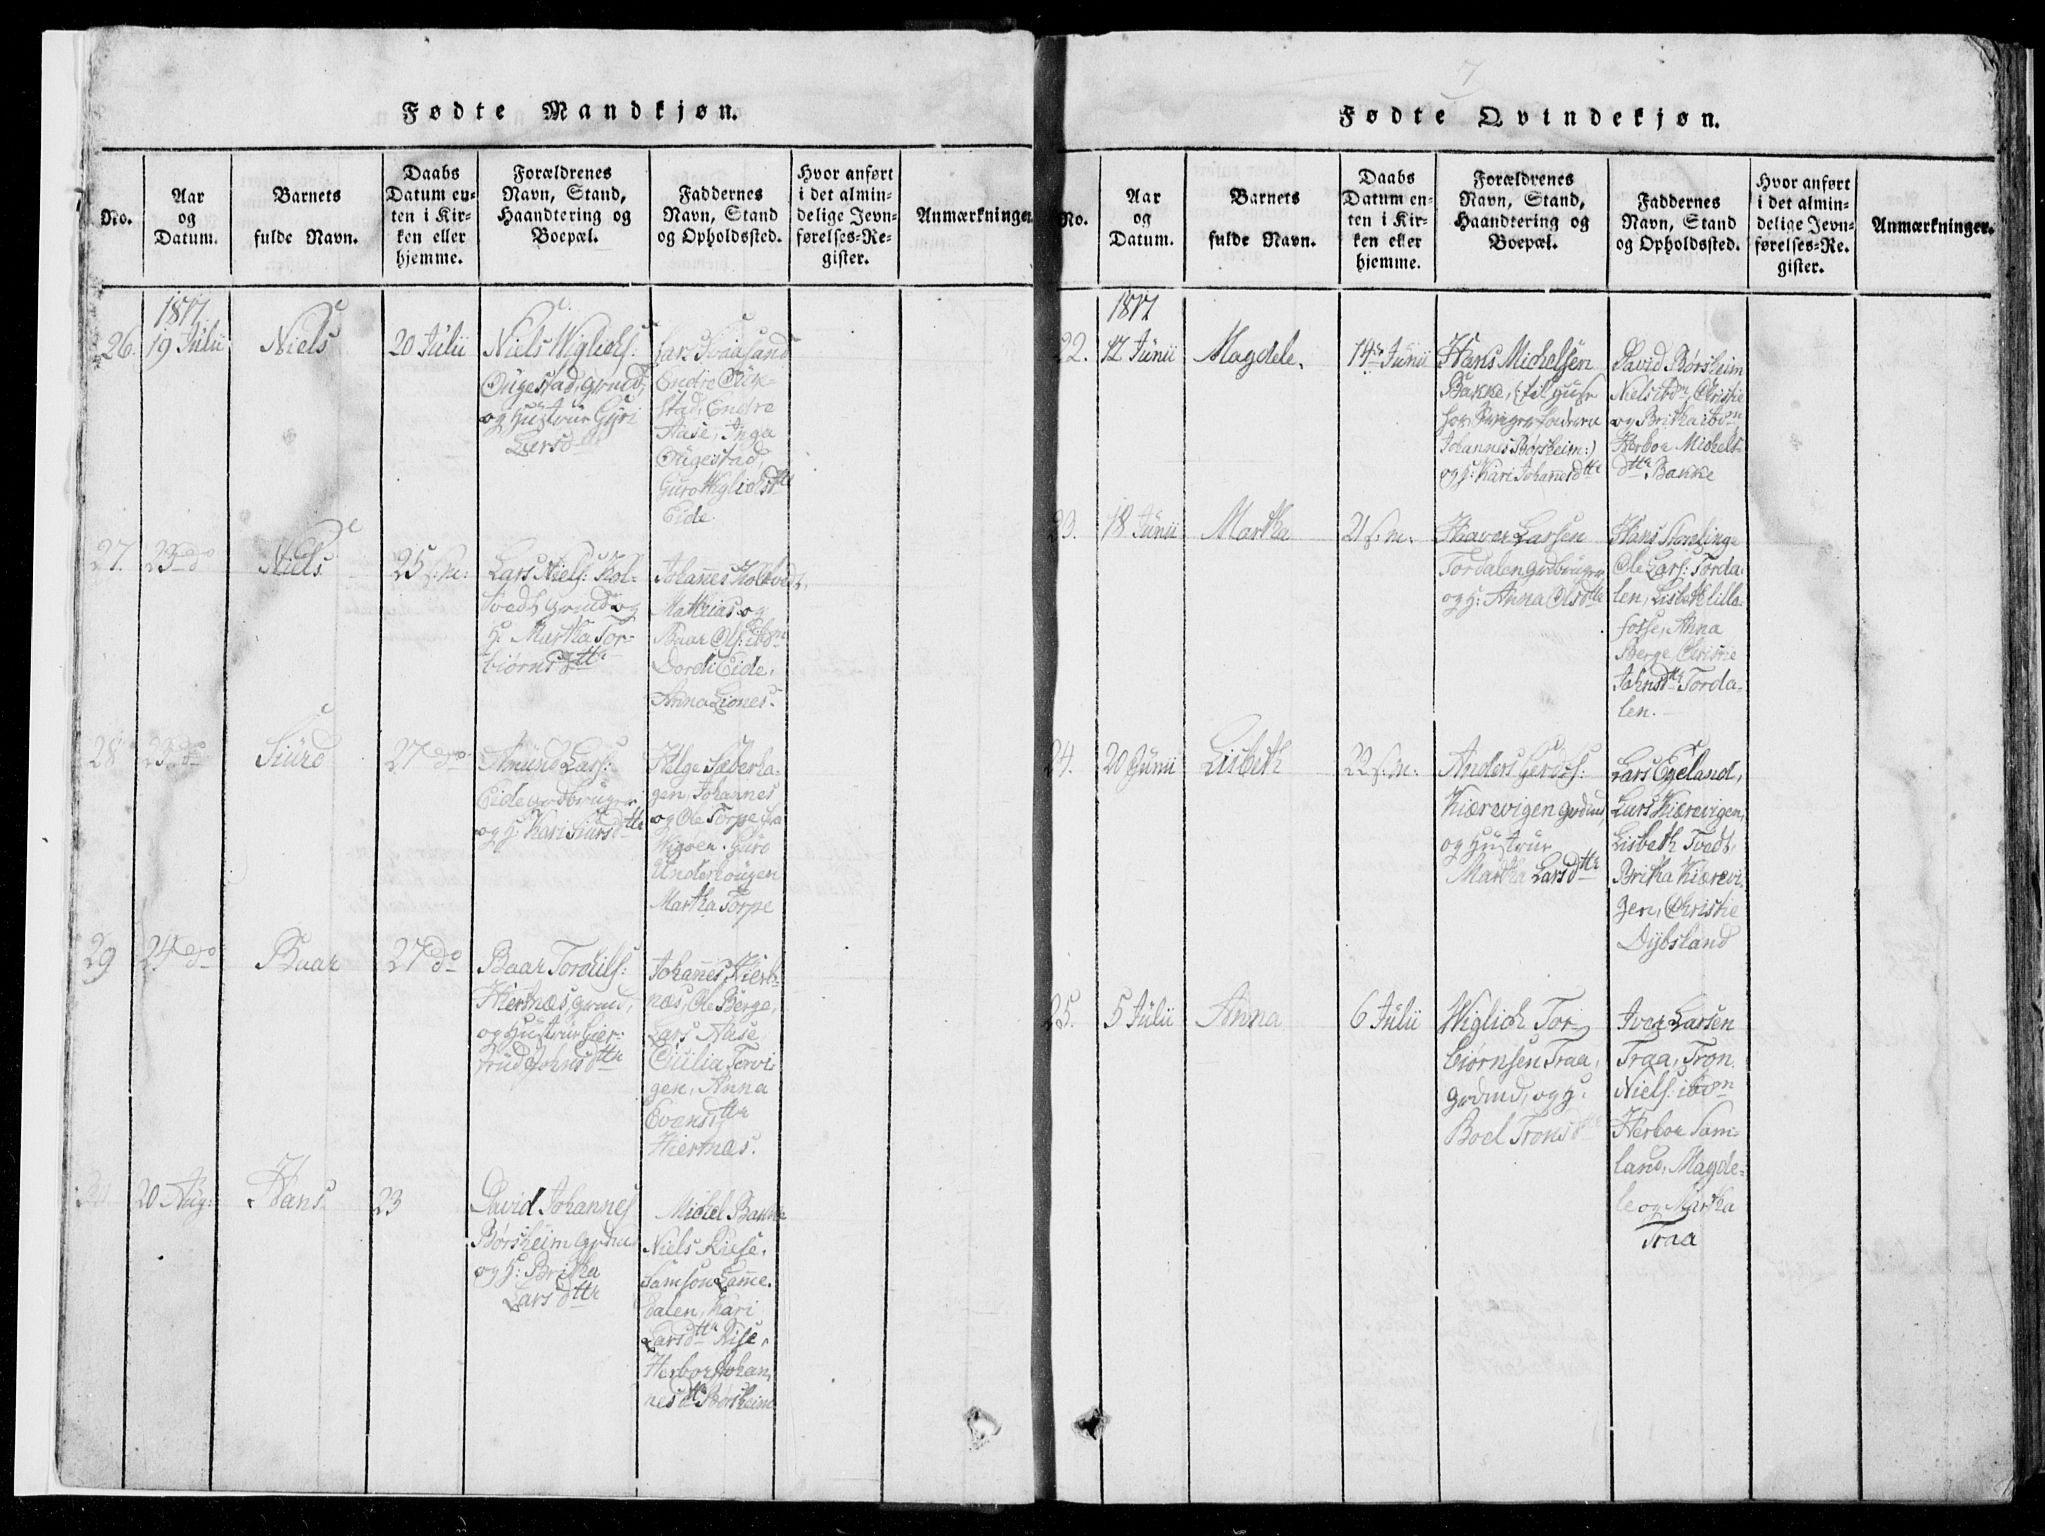 7
Fødte Mandkjøn.
No.
Aar
og
Datum.
Barnets
fulde Navn.
Daabs
Datum en-
ten i Kir-
ken eller
hjemme.
Forældrenes
Navn, Stand,
Haandtering og
Boepæl.
Faddernes
Navn, Stand
og Opholdssted.
Hvor anført
i det almin-
delige Jevn-
førelses-Re-
gister.
Anmærkninger.
1817.
26.
19 Julii
Niels
20 Julii
Niels Wiglichs:
Øÿgestad, grud,
og Hustrue Gÿri
Larsdtr
Lars Svaasand
Endre Øÿge-
stad, Endre
Aase, Inga
Øÿgestad
Guro Wiglichsdtr
Eide.
27.
23 do
Niels
25 s: m:
Lars Niels: Kol-
tvedt grud og
H: Martha Tor-
biørnsdtr
Johannes Koltvedt,
Mathias og
Baar Ols: ibdm
Dordi Eide,
Anna Liones.
28
23 do
Siurd
27 do
Amund Lars:
Eide grdbruger
og H: Kari Siursdtr
Helge Sæberha-
gen, Johannes
og Ole Torpe
Wigøen. Guro
Underhougen
Martha Torpe
29
24 do
Baar
27 do
Baar Torkils:
Hiertnæs, grud,
og Hustrue Gier-
trud Johnsdtr
Johannes Hiert-
næs, Ole Berge,
Lars Aase
Cicilia Torvi-
gen, Anna
Evensdtr
Hiertnæs.
20 Aug:
Hans
23
David Johannes
Børsheim grdm
og H: Britha
Larsdtr
Michel Bakke
Niels Riise,
Samson Lamme-
dalen, Kari
Larsdtr Rise,
Herbor Johan-
nesdtr Børsheim
Fødte Qvindekjøn.
No.
Aar
og
Datum.
Barnets
fulde Navn.
Daabs
Datum en-
ten i Kir-
ken eller
hjemme.
Forældrenes
Navn, Stand,
Haandtering og
Boepæl.
Faddernes
Navn, Stand
og Opholdssted.
Hvor anført
i det almin-
delige Jevn-
førelses-Re.
gister.
Anmærkninger.
1817
22.
12 Junii
Magdele.
14de Junii
Hans Michelsen
Bakke, (: til Huse
hos Svigerfaderen
Johannes Børsheim:)
og H: Kari Johannesdtr
David Børsheim
Niels ibdm, Christie
og Britha ibdm
Herbor Michels-
dtr Bakke
23.
18 Junii
Martha
21 s: m:
Haavor Larsen
Tordalen grdbruger
og H: Anna Olsdtr
Hans
Ole Lars: Torda-
len, Lisbeth Lille-
fosse, Anna
Berge, Christie
Johnsdtr Torda-
len.
24.
20 Junii
Lisbeth
22 s: m:
Anders Gerdes:
Kiærevigen grdmd
og Hustrue
Martha Larsdtr
Lars Egeland,
Lars Kiærevigen,
Lisbeth Tvedt,
Britha Kiærevi-
gen, Christie
Dybsland
25.
5 Julii
Anna
6 Julii
Wiglich Tor-
biørnsen Traa,
grdmd, og H:
Boel Tronsdtr
Iver Larsen
Traa, Tron
Niels: ibdm
Herbor Sam-
land, Magde-
le og Martha
Traa